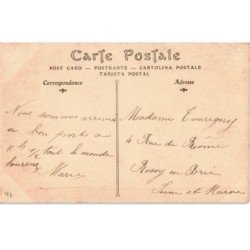 Carte Postale
POST CARD - POSTKARTE - CARTOLINA POSTALE
TARJETA POSTAL
Correspondance
Adresse
Nous sommes arrivés
en bon ports a
4 h ½ tout le monde
heureux
Marie
Madame Tourigny
4 Rue de Rome
Rosoy en Brie
Seine et Marne